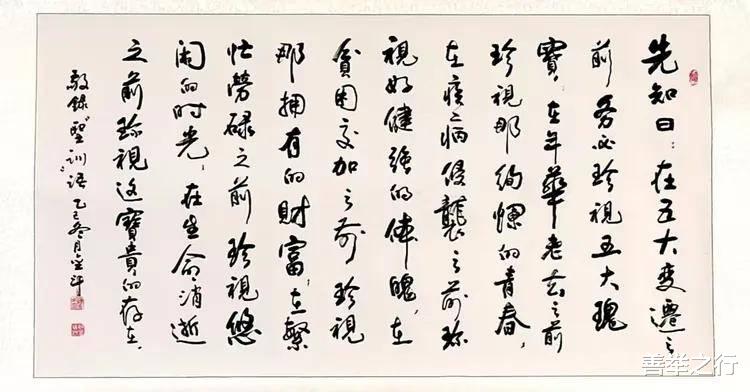 先知曰：在五大变遷之
前务必珍視五大瑰
寳：在年華老去之前
珍視那绚爛的青春，
在疾病侵襲之前珍
視好健強的体魄，在
貧困交加之前珍視
那拥有的財富，在繁
忙劳碌之前珍視悠
闲的时光，在生命消逝
之前珍視这寶貴的存在。
敬録“聖訓”语 乙巳冬月
善举之行